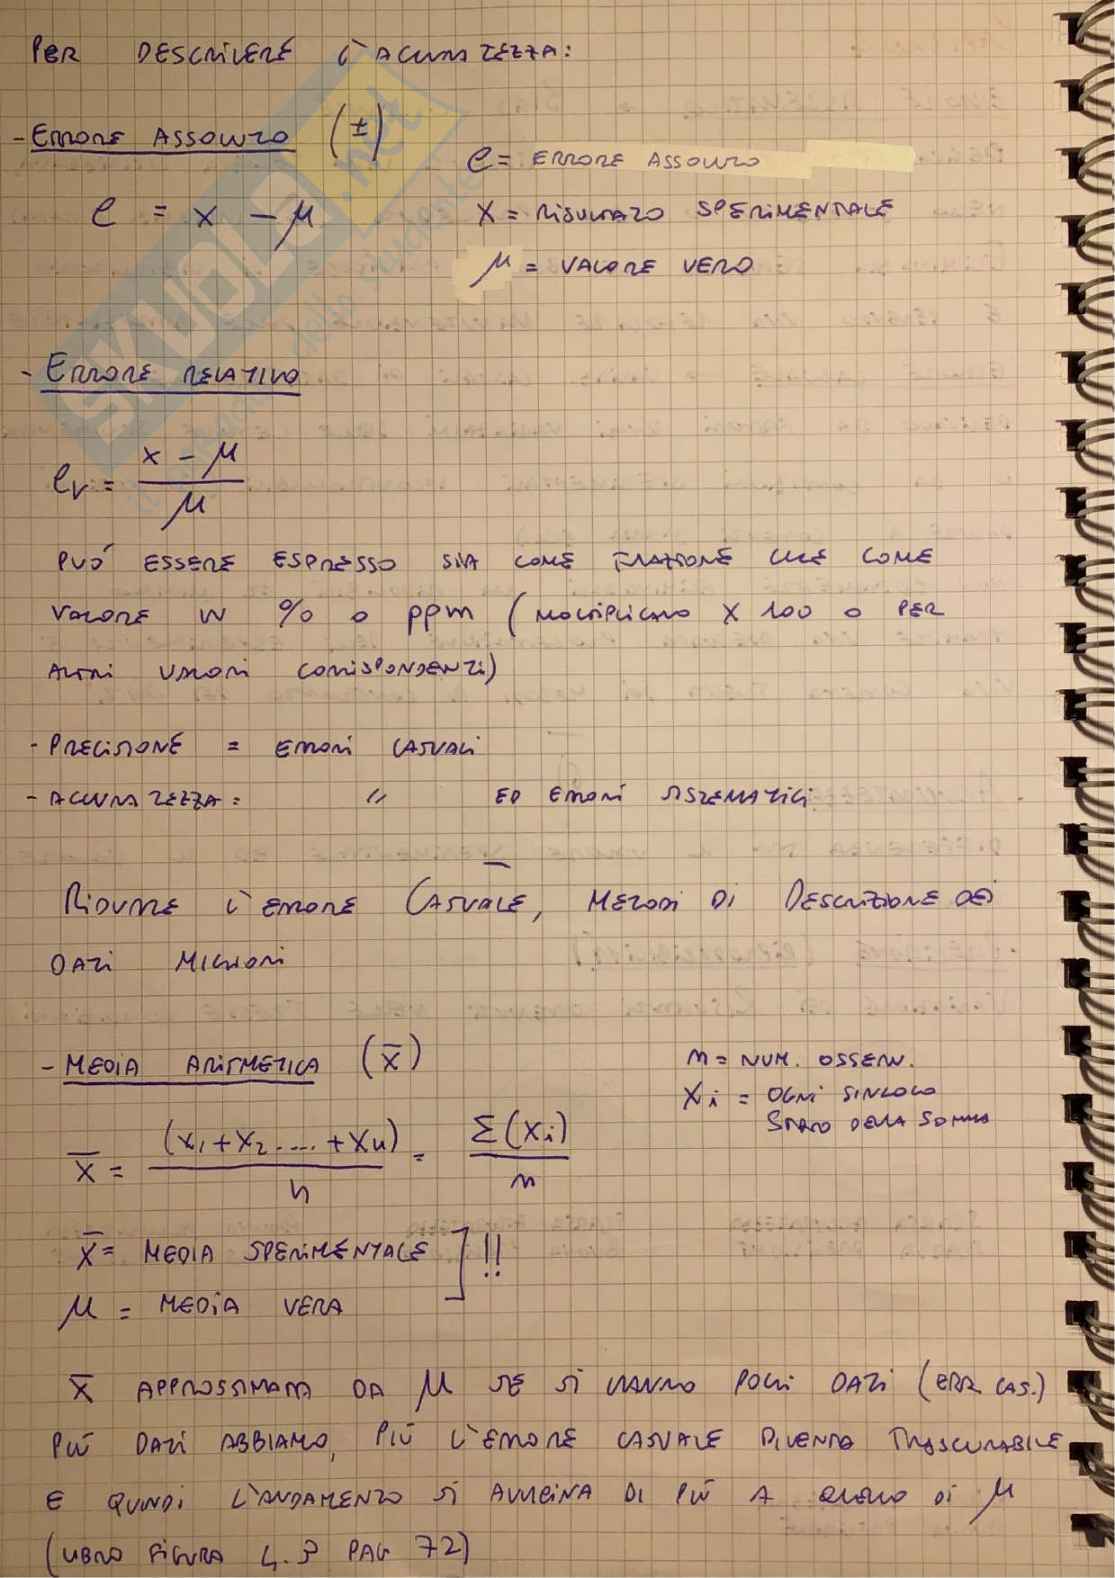 PER DESCRIVERE L'ACCURATEZZA:
- ERRORE ASSOLUTO (±)
e = ERRORE ASSOLUTO
e = x - μ
X = RISULTATO SPERIMENTALE
μ = VALORE VERO
- ERRORE RELATIVO
er = x - μ
μ
PUÓ ESSERE ESPRESSO SIA COME FRAZIONE CHE COME
VALORE IN % O ppm (MOLTIPLICATO X 100 O PER
ALTRI VALORI CORRISPONDENTI)
- PRECISIONE = ERRORI CASUALI
- ACCURATEZZA: " ED ERRORI SISTEMATICI
RIDURRE L'ERRORE CASUALE, METODI DI DESCRIZIONE DEI
DATI MIGLIORI
- MEDIA ARITMETICA (x̅)
n = NUM. OSSERV.
Xi = OGNI SINGOLO
STATO DELLA SOMMA
x̅ = (x1 + x2 .... + xn) = Σ(xi)
n n
x̅ = MEDIA SPERIMENTALE ] !!
μ = MEDIA VERA
x̅ APPROSSIMATA DA μ SE SI HANNO POCHI DATI (ERR. CAS.)
PIÙ DATI ABBIAMO, PIÙ L'ERRORE CASUALE DIVENTA TRASCURABILE
E QUINDI L'ANDAMENTO SI AVVICINA DI PIÙ A QUELLO DI μ
(LIBRO FIGURA 4.3 PAG 72)
SKUOLA.net